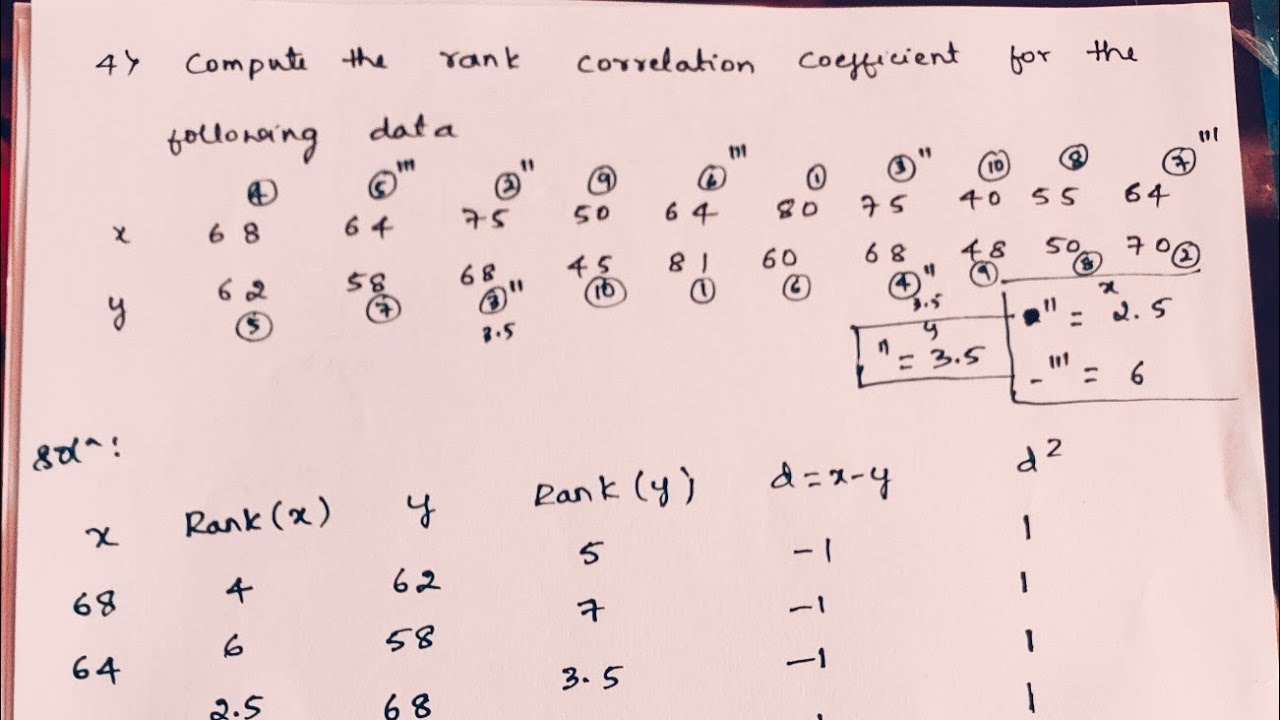 4> Compute the rank correlation coefficient for the
following data
4 5''' 2'' 9 6''' 1 3'' 10 8 7'''
x 68 64 75 50 64 80 75 40 55 64
y 62 58 68 45 81 60 68 48 50 70
5 7 3'' 10 1 6 4'' 9 8 2
3.5 3.5
y x
'' = 3.5 '' = 2.5
- ''' = 6
Sol^n:
x Rank(x) y Rank(y) d=x-y d²
68 4 62 5 -1 1
64 6 58 7 -1 1
2.5 68 3.5 -1 1
1